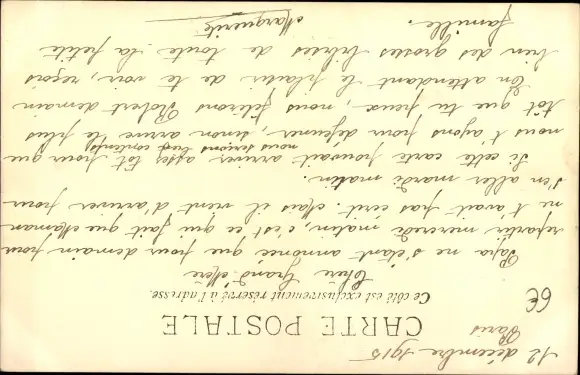 12 décembre 1915
Paris
CARTE POSTALE
Ce côté est exclusivement réservé à l'adresse.
6€
Chère Grand'Mère
Papa ne s'étant annoncé que pour demain pour
repartir mercredi matin, c'est ce qui fait que Maman
ne t'avait pas écrit. Mais il vient d'arriver pour
s'en aller mardi matin.
Si cette carte pouvait arriver assez tôt pour que
nous serions bien contents
nous t'ayons pour déjeuner, sinon arrive le plus
tôt que tu peux, nous fêterons Robert demain
En attendant le plaisir de te voir, reçois
bien des grosses bises de toute la petite
famille.
Marguerite